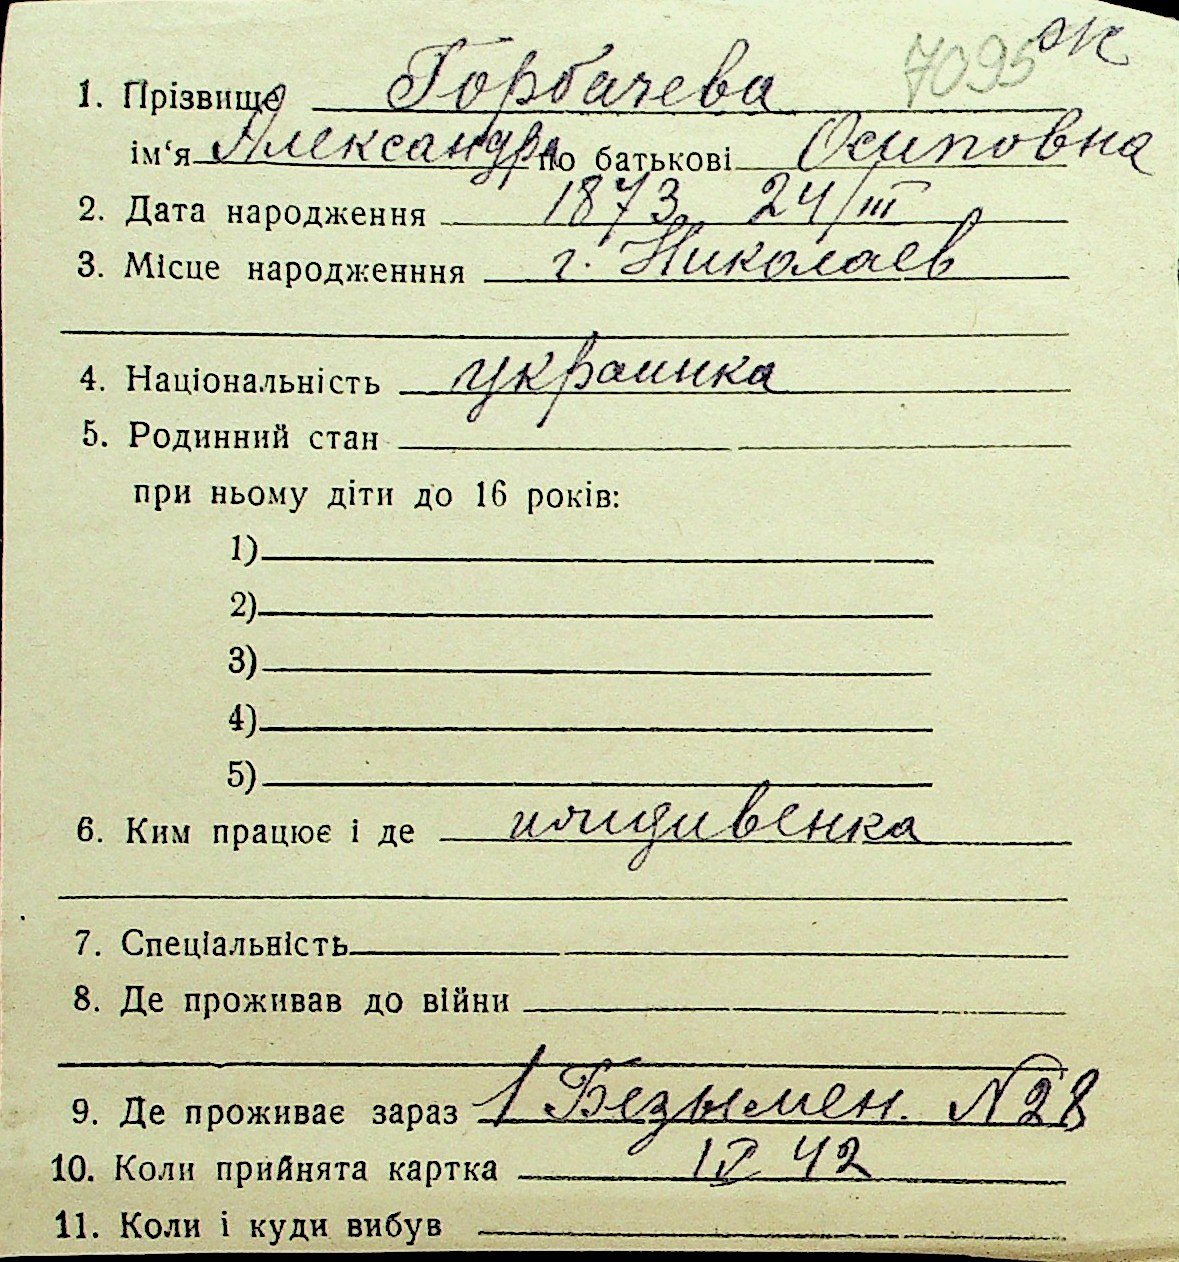 7095 Ж
1. Прізвище Горбачева
ім‘я Александра по батькові Осиповна
2. Дата народження 1873 24/III
3. Місце народженння г. Николаев
4. Національність украинка
5. Родинний стан
при ньому діти до 16 років:
1)
2)
3)
4)
5)
6. Ким працює і де иждивенка
7. Спеціальність
8. Де проживав до війни
9. Де проживає зараз 1 Безымен. № 28
10. Коли прийнята картка IV 42
11. Коли і куди вибув